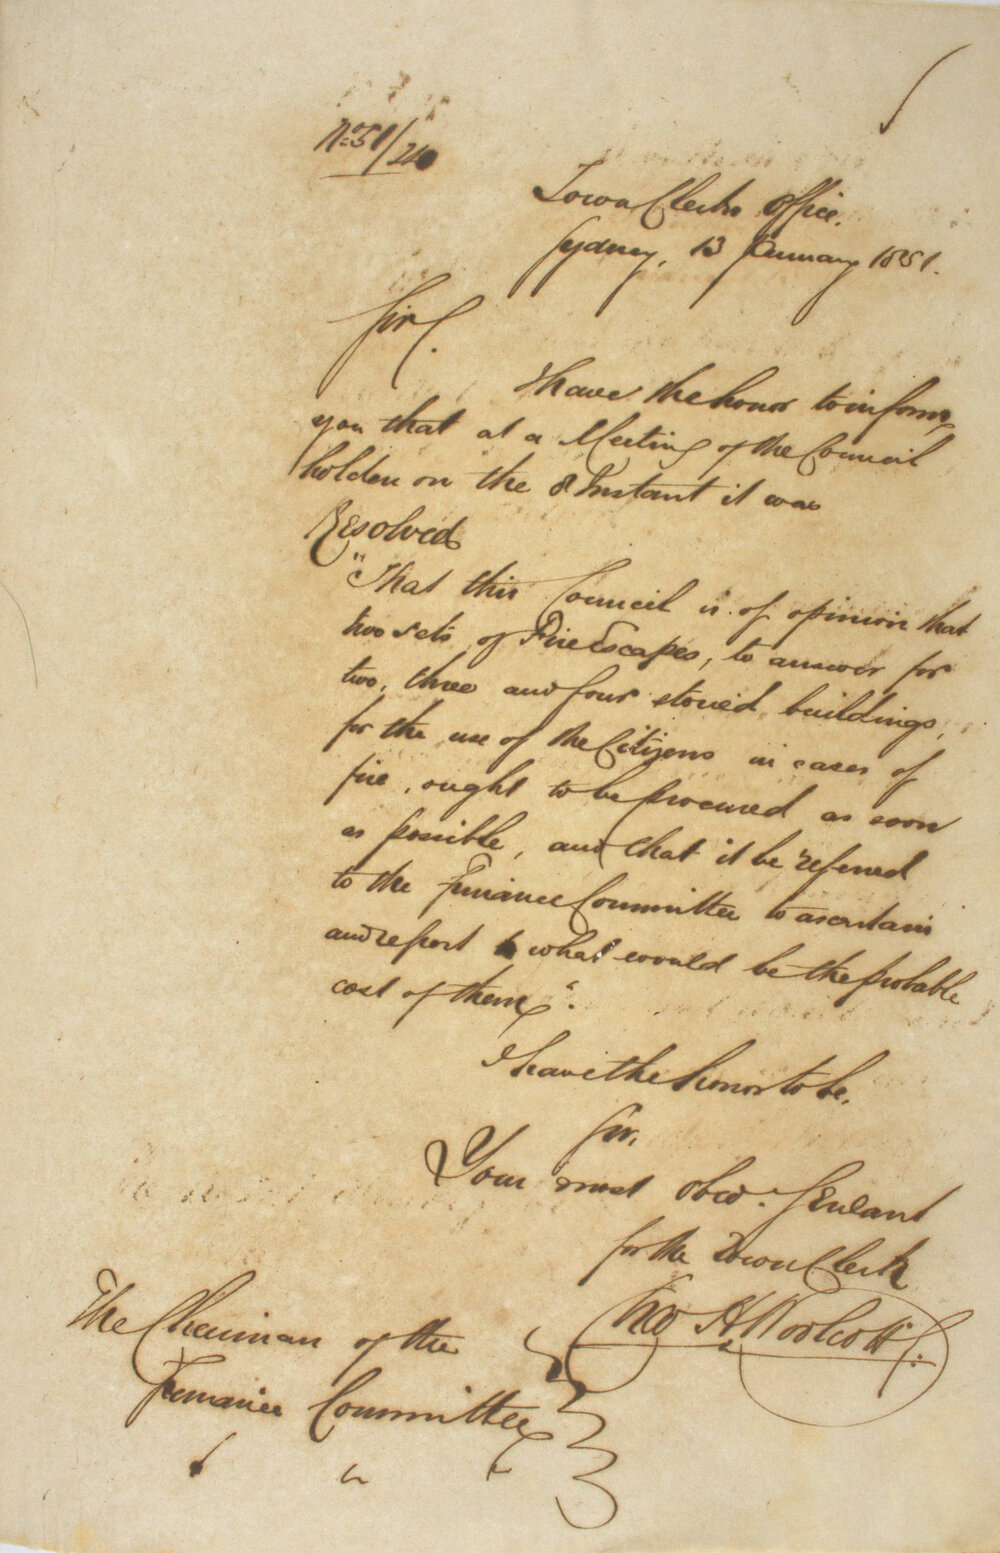 No 51/240
Town Clerks Office.
Sydney, 13 January 1851.
Sir,
I have the honor to inform
you that at a Meeting of the Council
holden on the 8 Instant it was
Resolved
"That this Council is of opinion that
two sets of Fire Escapes, to answer for
two, three and four storied buildings,
for the use of the Citizens in cases of
fire, ought to be procured as soon
as possible, and that it be referred
to the Finance Committee to ascertain
and report what would be the probable
cost of them".
I have the honor to be,
Sir,
Your most obed. Servant
for the Town Clerk
H Woolcott
The Chairman of the
Finance Committee